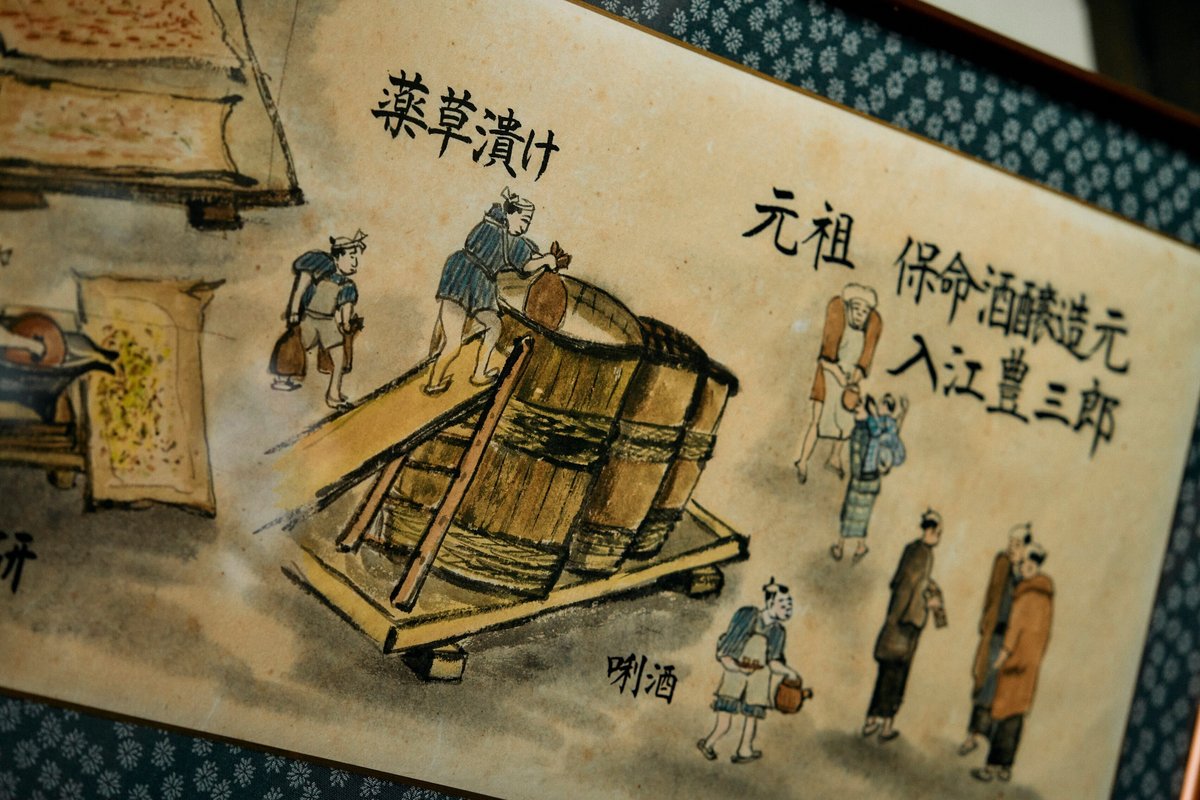 薬草漬け
元祖
保命酒醸造元
入江豊三郎
唎酒
研